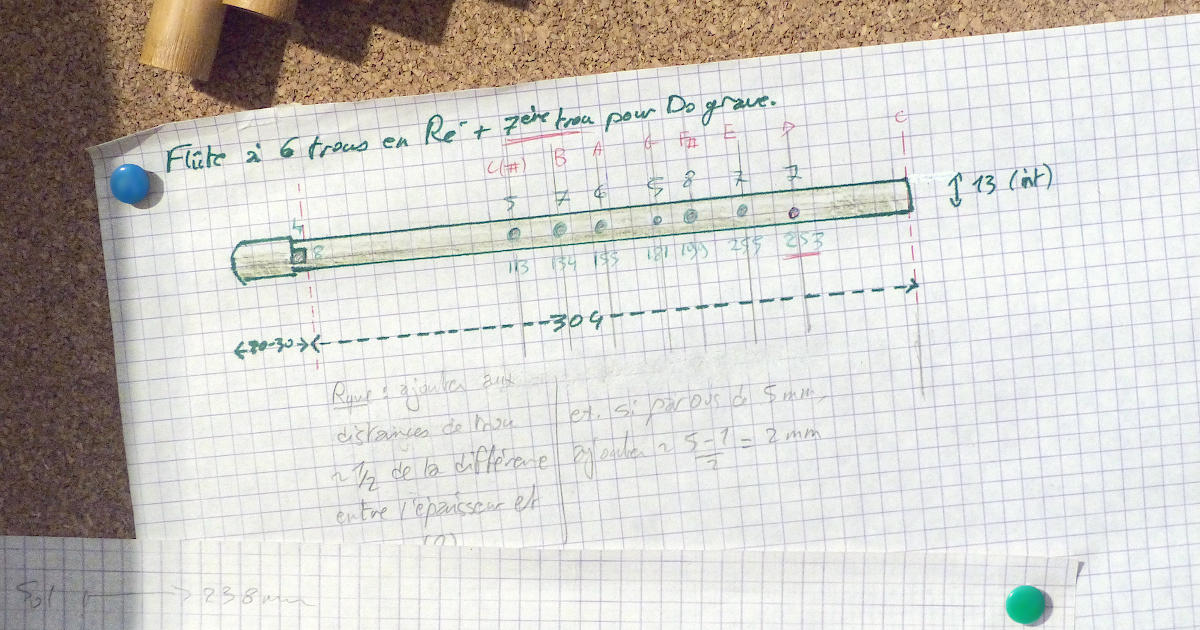 Flûte à 6 trous en Ré + 7ère trou pour Do grave.
C(#) B A G F# E D C
5 7 6 5 8 7 7
13 (int)
4
8
113 134 155 181 199 253
304
20-30
Rque : ajouter aux
distances de trou
~ 1/2 de la différence
entre l'épaisseur et
et. si parois de 5 mm,
ajouter ~ 5-1/2 = 2 mm
Sol 238mm